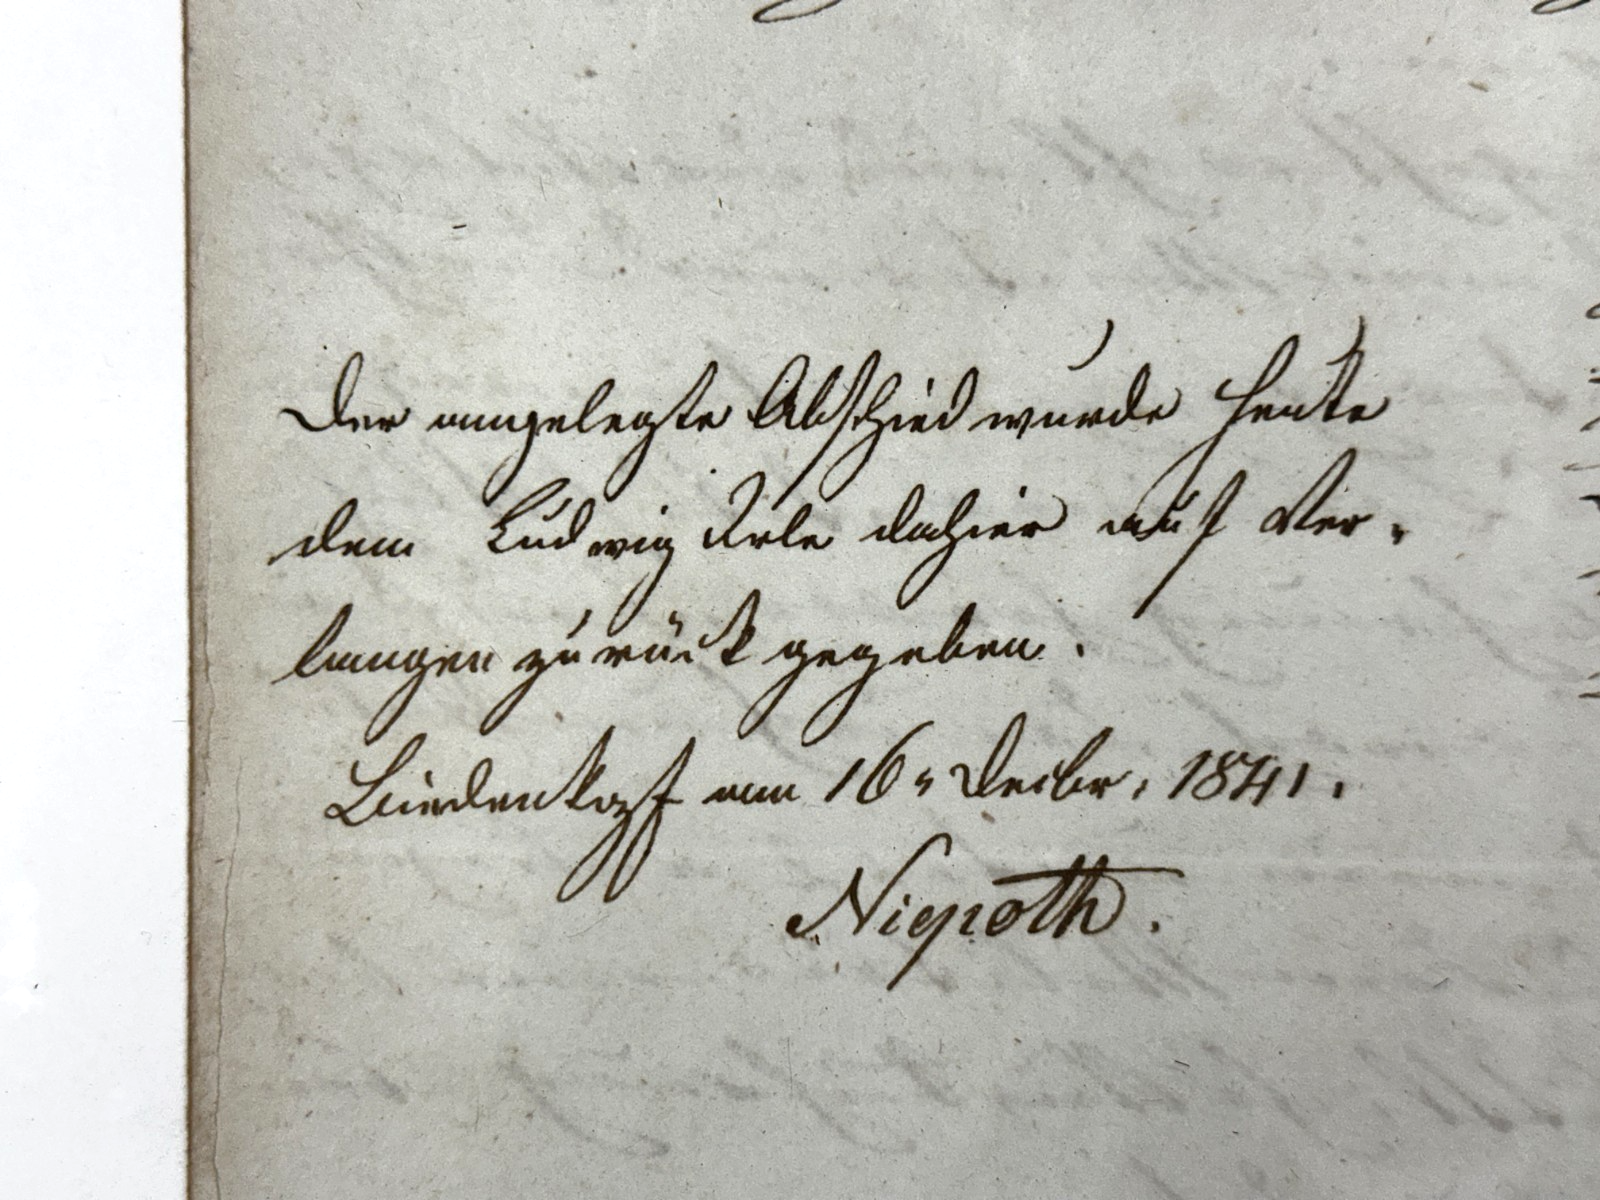 Der angelegte Abschied wurde heute
dem Ludwig Irle dahier auf Ver-
langen zurück gegeben.
Biedenkopf am 16n Decbr. 1841.
Niepoth.